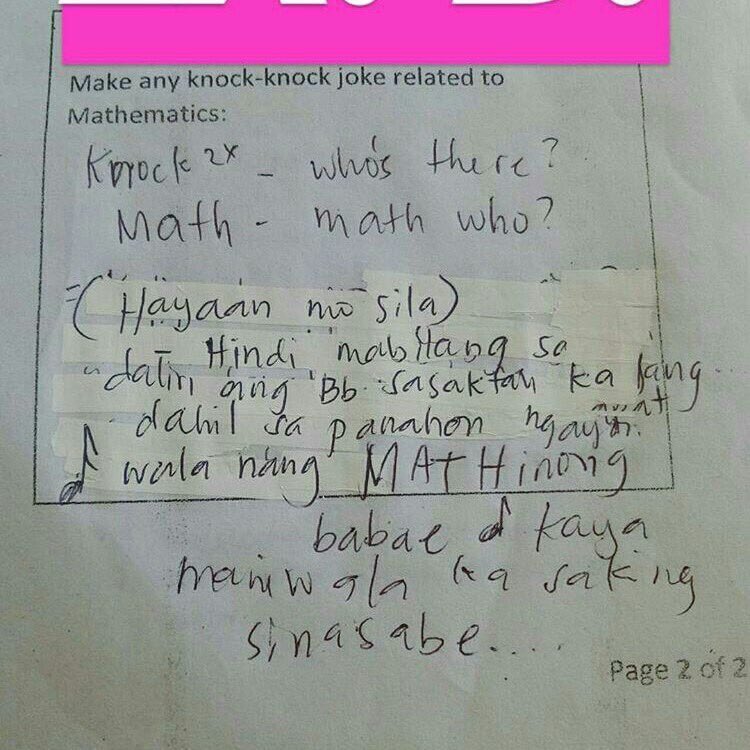 Make any knock-knock joke related to
Mathematics:
Knock 2x - who's there?
Math - math who?
(Hayaan mo sila)
Hindi mabilang sa
daliri ang Bb. sasaktan ka lang
dahil sa panahon ngayon
wala nang MATHinong
babae kaya
maniwala ka saking
sinasabe....
Page 2 of 2